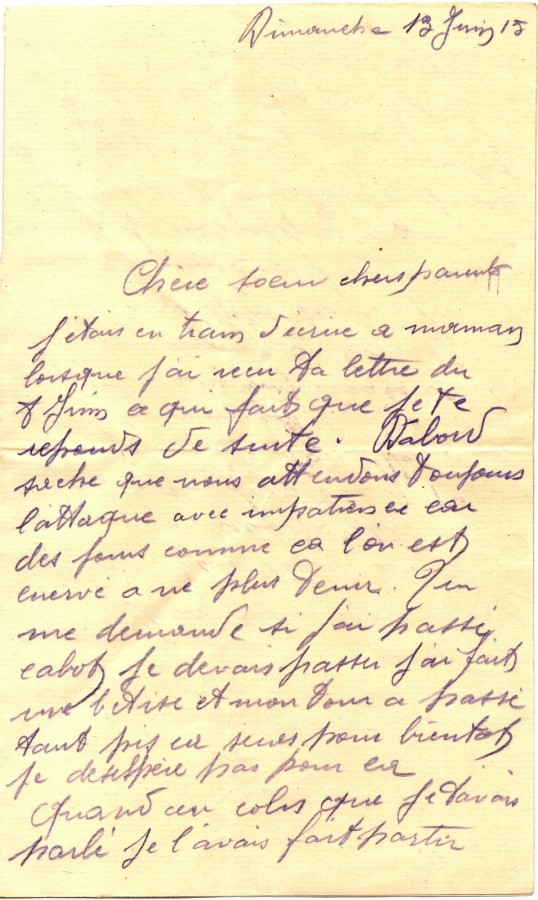 Dimanche 13 Juin 15
Chère soeur chers parents
J'étais en train d'écrire a maman
lorsque j'ai recu ta lettre du
8 Juin ce qui fait que je te
reponds de suite. D'abord
sache que nous attendons toujours
l'attaque avec impatience car
des jours comme ca l'on est
enervé a ne plus tenir. Tu
me demande si j'ai passé
cabot je devais passer j'ai fait
une betise et mon tour a passé
tant pis ca seras pour bientot
je desespère pas pour ca
Quand au colis que je t'avais
parlé je l'avais fait partir